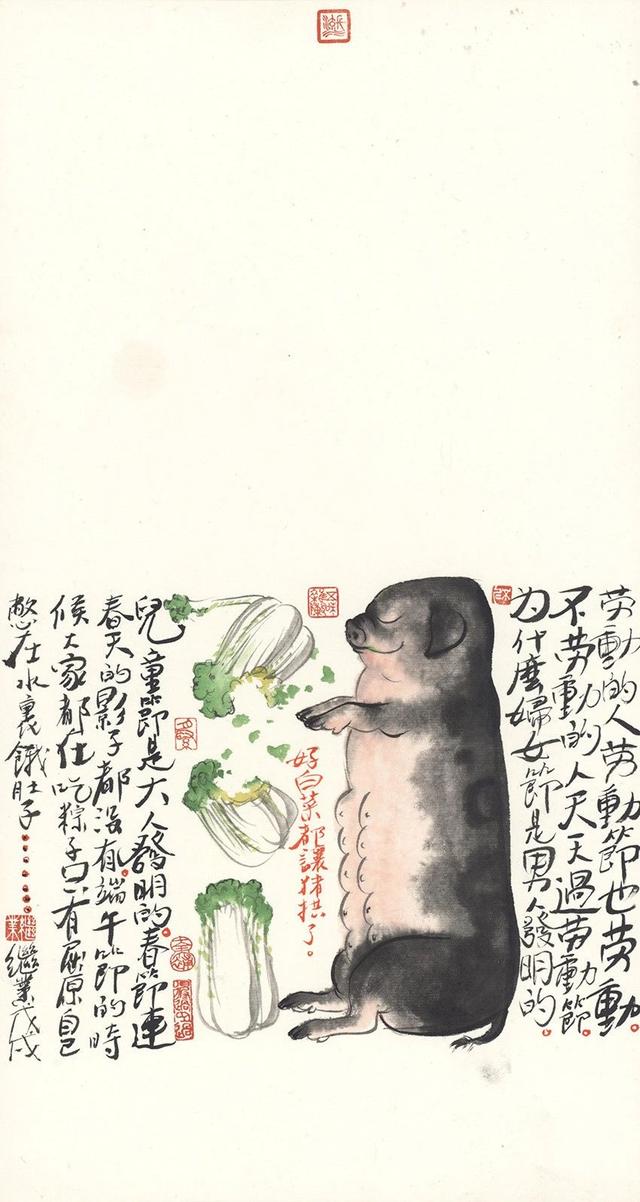 劳動的人劳動節也劳動。
不劳動的人天天過劳動節。
为什麼婦女節是男人發明的。
好白菜都讓猪拱了。
兒童節是大人發明的。春節連
春天的影子都沒有。端午節的時
候大家都在吃粽子只有屈原自己
憋在水裏餓肚子………
繼業戊戌